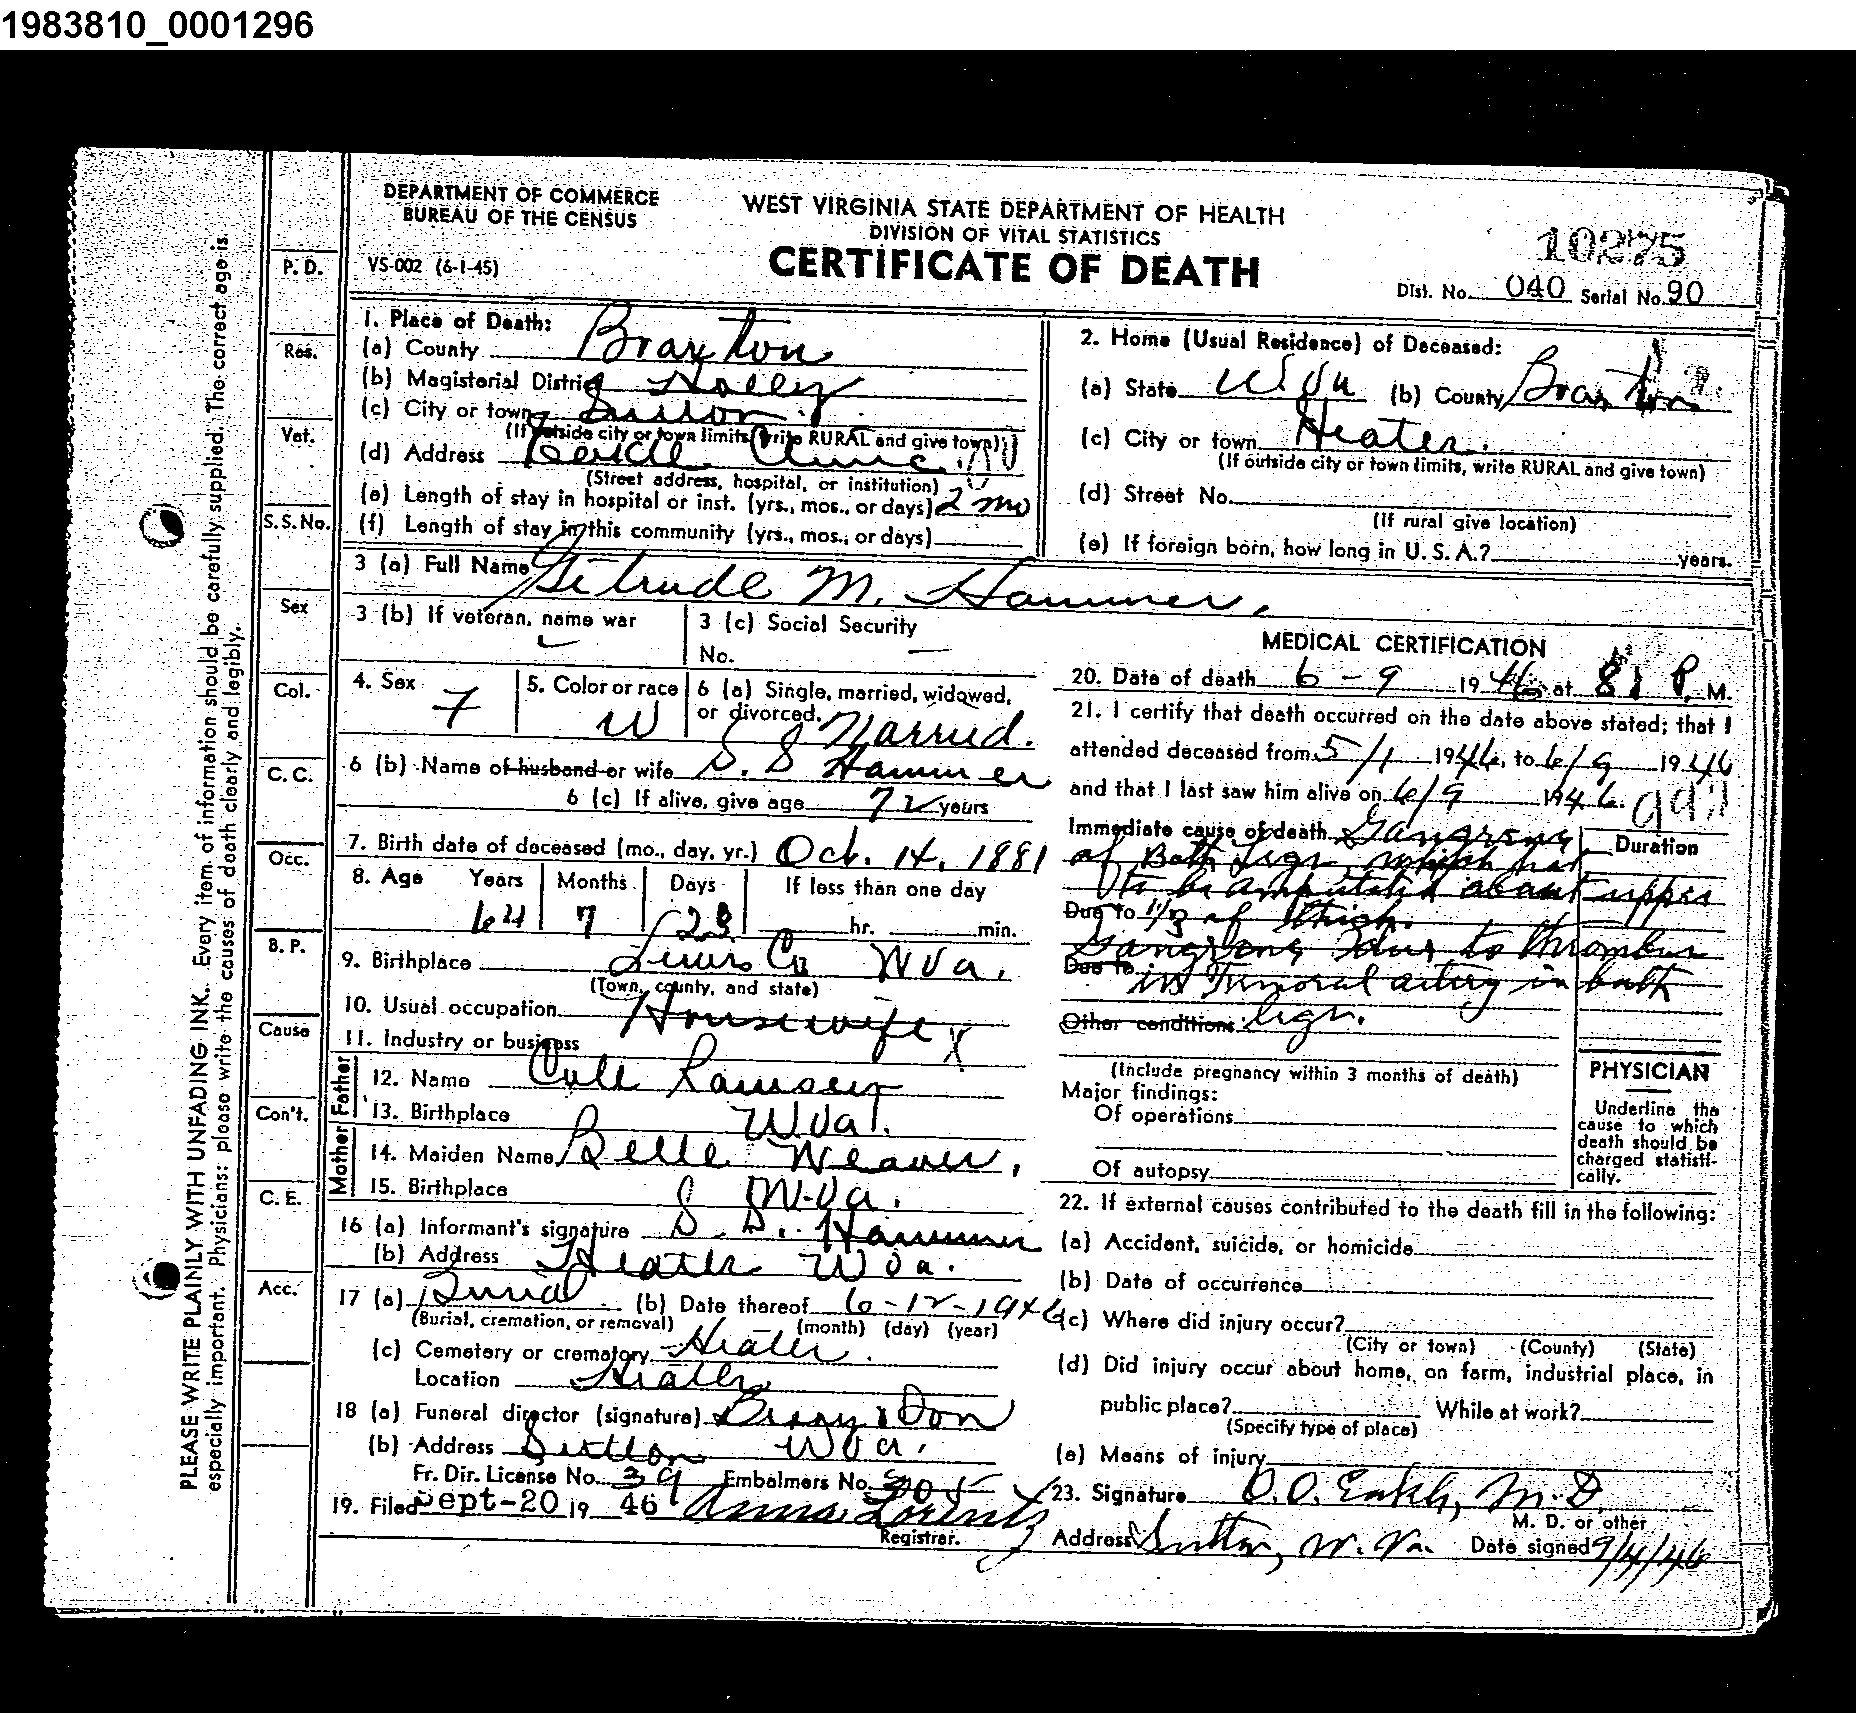 1983810_0001296
DEPARTMENT OF COMMERCE
BUREAU OF THE CENSUS
VS-002 (6-1-45)
WEST VIRGINIA STATE DEPARTMENT OF HEALTH
DIVISION OF VITAL STATISTICS
CERTIFICATE OF DEATH
10275
Dist. No. 040 Serial No. 90
PLEASE WRITE PLAINLY WITH UNFADING INK. Every item of information should be carefully supplied. The correct age is
especially important. Physicians: please write the causes of death clearly and legibly.
P. D.
Res.
Vet.
S. S. No.
Sex
Col.
C. C.
Occ.
B. P.
Cause
Con't.
C. E.
Acc.
1. Place of Death:
(a) County Braxton
(b) Magisterial District Holly
(c) City or town Sutton
(If outside city or town limits, write RURAL and give town)
(d) Address Clinic
(Street address, hospital, or institution)
(e) Length of stay in hospital or inst. (yrs., mos., or days) 2 mo
(f) Length of stay in this community (yrs., mos., or days)
2. Home (Usual Residence) of Deceased:
(a) State W Va (b) County Braxton
(c) City or town Heater.
(If outside city or town limits, write RURAL and give town)
(d) Street No.
(If rural give location)
(e) If foreign born, how long in U. S. A.? years.
3 (a) Full Name Getrude M. Hammer.
3 (b) If veteran, name war
3 (c) Social Security
No. —
4. Sex F
5. Color or race W
6 (a) Single, married, widowed,
or divorced. Married.
6 (b) Name of husband or wife S. S Hammer
6 (c) If alive, give age 72 years
7. Birth date of deceased (mo., day, yr.) Oct. 14, 1881
8. Age Years Months Days If less than one day
64 7 23 hr. min.
9. Birthplace Lewis Co W Va.
(Town, county, and state)
10. Usual occupation Housewife X
11. Industry or business
Father
12. Name Cole Ramsey
13. Birthplace W Va.
Mother
14. Maiden Name Belle Weaver.
15. Birthplace W-Va.
16 (a) Informant's signature S. S. Hammer
(b) Address Heater W Va.
17 (a) Burial (b) Date thereof 6-12-1946
(Burial, cremation, or removal) (month) (day) (year)
(c) Cemetery or crematory Heater.
Location Heater
18 (a) Funeral director (signature)
(b) Address Sutton W Va.
Fr. Dir. License No. 39 Embalmers No.
19. Filed Sept-20 19 46 Anna Lorentz
Registrar.
MEDICAL CERTIFICATION
20. Date of death 6-9 1946 at P. M.
21. I certify that death occurred on the date above stated; that I
attended deceased from 5/1 1946, to 6/9 1946
and that I last saw him alive on 6/9 1946.
Immediate cause of death Gangrene
Duration
of Both Legs which had
to be amputated about upper
Due to 1/3 of thigh.
Gangrene due to thrombus
Due to in Femoral artery in both
Other conditions legs.
(Include pregnancy within 3 months of death)
Major findings:
Of operations
Of autopsy
PHYSICIAN
Underline the
cause to which
death should be
charged statisti-
cally.
22. If external causes contributed to the death fill in the following:
(a) Accident, suicide, or homicide
(b) Date of occurrence
(c) Where did injury occur?
(City or town) (County) (State)
(d) Did injury occur about home, on farm, industrial place, in
public place? While at work?
(Specify type of place)
(e) Means of injury
23. Signature M. D.
M. D. or other
Address Sutton, W. Va. Date signed 9/4/46